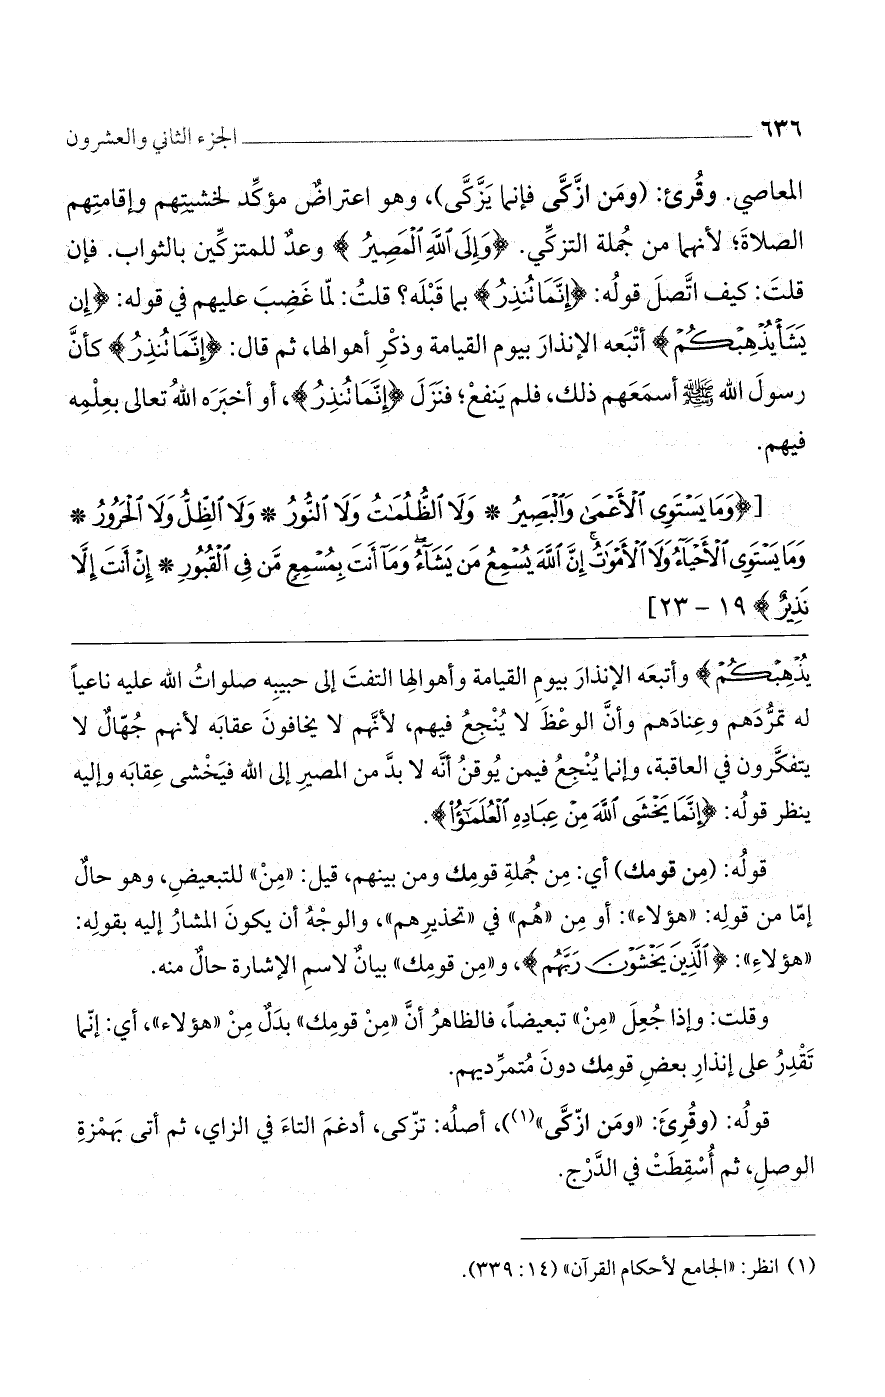 ٦٣٦ الجزء الثاني والعشرون
المعاصي. وقُرئ: (ومَن ازَّكَّى فإنما يَزَّكَّى)، وهو اعتراضٌ مؤكِّد لخشيتِهم وإقامتِهم
الصلاةَ؛ لأنهما من جُملة التزكِّي. ﴿وَإِلَى ٱللَّهِ ٱلْمَصِيرُ﴾ وعدٌ للمتزكِّين بالثواب. فإن
قلتَ: كيف اتَّصلَ قولُه: ﴿إِنَّمَا تُنذِرُ﴾ بما قَبْلَه؟ قلتُ: لمّا غَضِبَ عليهم في قوله: ﴿إِن
يَشَأْ يُذْهِبْكُمْ﴾ أتْبَعه الإنذارَ بيوم القيامة وذكْرِ أهوالها، ثم قال: ﴿إِنَّمَا تُنذِرُ﴾ كأنَّ
رسولَ الله ﷺ أسمَعَهم ذلك، فلم يَنفعْ؛ فنَزَلَ ﴿إِنَّمَا تُنذِرُ﴾، أو أخبَرَه اللهُ تعالى بعِلْمِه
فيهم.
[﴿وَمَا يَسْتَوِى ٱلْأَعْمَىٰ وَٱلْبَصِيرُ * وَلَا ٱلظُّلُمَـٰتُ وَلَا ٱلنُّورُ * وَلَا ٱلظِّلُّ وَلَا ٱلْحَرُورُ *
وَمَا يَسْتَوِى ٱلْأَحْيَآءُ وَلَا ٱلْأَمْوَٰتُ ۚ إِنَّ ٱللَّهَ يُسْمِعُ مَن يَشَآءُ ۖ وَمَآ أَنتَ بِمُسْمِعٍ مَّن فِى ٱلْقُبُورِ * إِنْ أَنتَ إِلَّا
نَذِيرٌ﴾ ١٩ - ٢٣]
يُذْهِبْكُمْ﴾ وأتبعَه الإنذارَ بيومِ القيامة وأهوالِها التفتَ إلى حبيبِه صلواتُ الله عليه ناعياً
له تمرُّدَهم وعِنادَهم وأنَّ الوعْظَ لا يُنْجِعُ فيهم، لأنَّهم لا يخافونَ عقابَه لأنهم جُهّالٌ لا
يتفكَّرون في العاقبة، وإنما يُنْجِعُ فيمن يُوقنُ أنَّه لا بدَّ من المصيرِ إلى الله فيَخْشى عِقابَه وإليه
ينظر قولُه: ﴿إِنَّمَا يَخْشَى ٱللَّهَ مِنْ عِبَادِهِ ٱلْعُلَمَـٰٓؤُا۟﴾.
قولُه: (مِن قومك) أي: مِن جُملةِ قومِك ومن بينهم، قيل: «مِنْ» للتبعيضِ، وهو حالٌ
إمّا من قولِه: «هؤلاء»: أو مِن «هُم» في «تحذيرِهم»، والوجْهُ أن يكونَ المشارُ إليه بقولِه:
«هؤلاءِ»: ﴿ٱلَّذِينَ يَخْشَوْنَ رَبَّهُم﴾، و«مِن قومِك» بيانٌ لاسمِ الإشارة حالٌ منه.
وقلت: وإذا جُعِلَ «مِنْ» تبعيضاً، فالظاهرُ أنَّ «مِنْ قومِك» بدَلٌ مِنْ «هؤلاء»، أي: إنّما
تَقْدِرُ على إنذارِ بعضِ قومِك دونَ مُتمرِّديهم.
قولُه: (وقُرِئَ: «ومَن ازّكَّى»(١))، أصلُه: تزّكى، أدغمَ التاءَ في الزاي، ثم أتى بهَمْزةِ
الوصلِ، ثم أُسْقِطَتْ في الدَّرْج.
(١) انظر: «الجامع لأحكام القرآن» (١٤: ٣٣٩).